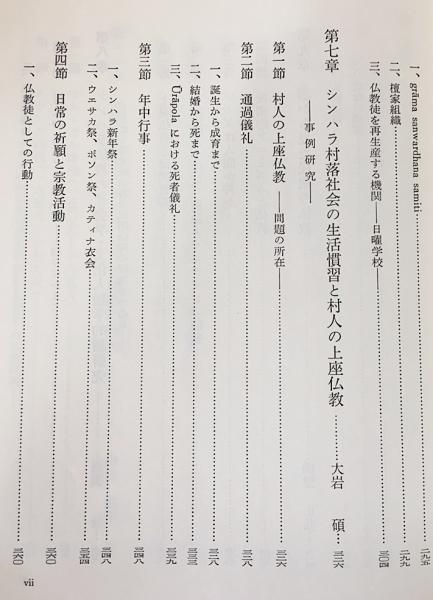 一、grāma sanwardhana samiti……二九五
二、檀家組織……二九九
三、仏教徒を再生産する機関――日曜学校――……三〇四
第七章　シンハラ村落社会の生活慣習と村人の上座仏教……大岩　碩…三二六
――事例研究――
第一節　村人の上座仏教――問題の所在……三二六
第二節　通過儀礼……三二八
一、誕生から成育まで……三二八
二、結婚から死まで……三三三
三、Ūrāpola における死者儀礼……三三九
第三節　年中行事……三四八
一、シンハラ新年祭……三四八
二、ウェサカ祭、ポソン祭、カティナ衣会……三五四
第四節　日常の祈願と宗教活動……三六〇
一、仏教徒としての行動……三六〇
vii